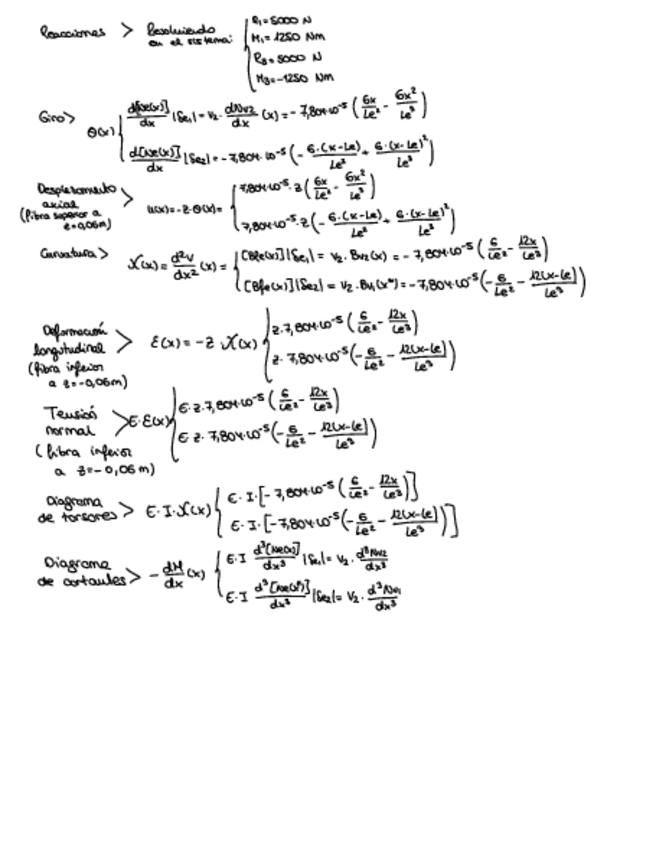 Reacciones > Resolviendo en el sistema: { R₁=5000 N
M₁=1250 Nm
R₃=5000 N
M₃=-1250 Nm
Giro > θ(x) { d[Ne(x)]/dx |δe₁| = v₂. dNv2/dx (x) = - 7,804·10⁻⁵ ( 6x/Le² - 6x²/Le³ )
d[Ne(x)]/dx |δe₂| = - 7,804·10⁻⁵ ( - 6·(x-Le)/Le² + 6·(x-Le)²/Le³ )
Desplazamiento axial (fibra superior a z=0,06m) > u(x)=-z·θ(x)= { 7,804·10⁻⁵·z ( 6x/Le² - 6x²/Le³ )
7,804·10⁻⁵·z ( - 6·(x-Le)/Le² + 6·(x-Le)²/Le³ )
Curvatura > χ(x) = d²v/dx² (x) = { [Bfe(x)]|δe₁| = v₂ · Bv2(x) = - 7,804·10⁻⁵ ( 6/Le² - 12x/Le³ )
[Bfe(x)]|δe₂| = v₂ · Bv₁(x*) = - 7,804·10⁻⁵ ( - 6/Le² - 12(x-Le)/Le³ )
Deformación longitudinal (fibra inferior a z=-0,06m) > ε(x) = -z χ(x) { z·7,804·10⁻⁵ ( 6/Le² - 12x/Le³ )
z· 7,804·10⁻⁵ ( - 6/Le² - 12(x-Le)/Le³ )
Tensión normal (fibra inferior a z=-0,06m) > E·ε(x) { E·z·7,804·10⁻⁵ ( 6/Le² - 12x/Le³ )
E·z· 7,804·10⁻⁵ ( - 6/Le² - 12(x-Le)/Le³ )
Diagrama de torsores > E·I·χ(x) { E·I·[- 7,804·10⁻⁵ ( 6/Le² - 12x/Le³ )]
E·I·[-7,804·10⁻⁵ ( - 6/Le² - 12(x-Le)/Le³ )]
Diagrama de cortantes > - dM/dx (x) { E·I d³[Ne(x)]/dx³ |δe₁| = v₂ · d³Nv2/dx³
E·I d³[Ne(x*)]/dx³ |δe₂| = v₂ · d³Nv1/dx³